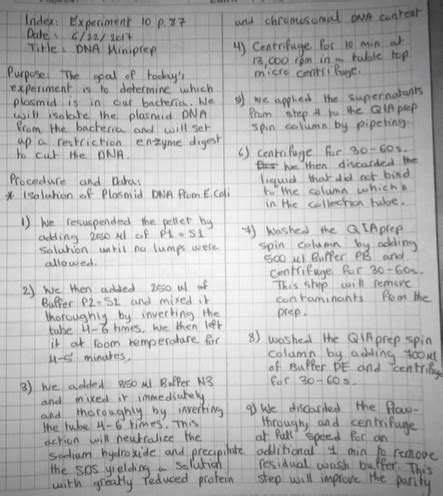 Index: Experiment 10 p.87
Date: 6/22/2017
Title: DNA Miniprep
Purpose: The goal of today's
experiment is to determine which
plasmid is in our bacteria. We
will isolate the plasmid DNA
from the bacteria and will set
up a restriction enzyme digest
to cut the DNA.
Procedure and Data:
* Isolation of Plasmid DNA from E.Coli
1) We resuspended the pellet by
adding 250 ul of P1 = S1
solution until no lumps were
allowed.
2) We then added 250 ul of
Buffer P2=S2 and mixed it
thoroughly by inverting the
tube 4-6 times. We then left
it at room temperature for
4-5 minutes.
3) We added 350 ul Buffer N3
and mixed it immediately
and thoroughly by inverting
the tube 4-6 times. This
action will neutralize the
sodium hydroxide and precipitate
the SDS yielding a solution
with greatly reduced protein
and chromosomal DNA content
4) Centrifuge for 10 min at
13,000 rpm in a table top
micro centrifuge.
5) We applied the supernatants
from step 4 to the QIAprep
spin column by pipeting.
6) Centrifuge for 30-60s.
We then discarded the
liquid that did not bind
to the column which is
in the collection tube.
7) Washed the QIAprep
spin column by adding
500 ul Buffer PB and
centrifuge for 30-60s.
This step will remove
contaminants from the
prep.
8) washed the QIAprep spin
column by adding 700 ul
of Buffer PE and centrifuge
for 30-60s.
9) We discarded the flow-
through, and centrifuge
at full speed for an
additional 1 min to remove
residual wash buffer. This
step will improve the purity